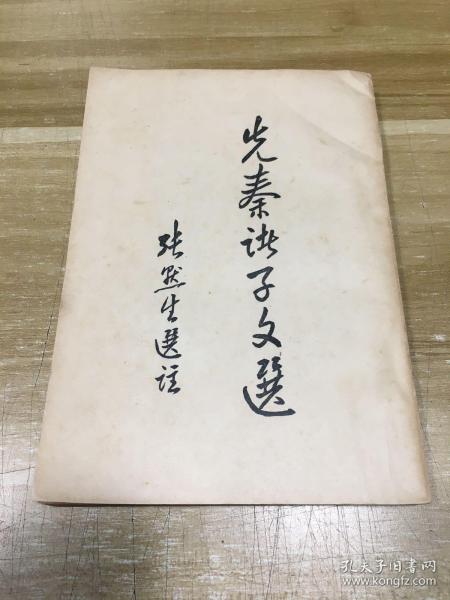 先秦诸子文選
張默生選註
孔夫子旧书网
www.kongfz.com